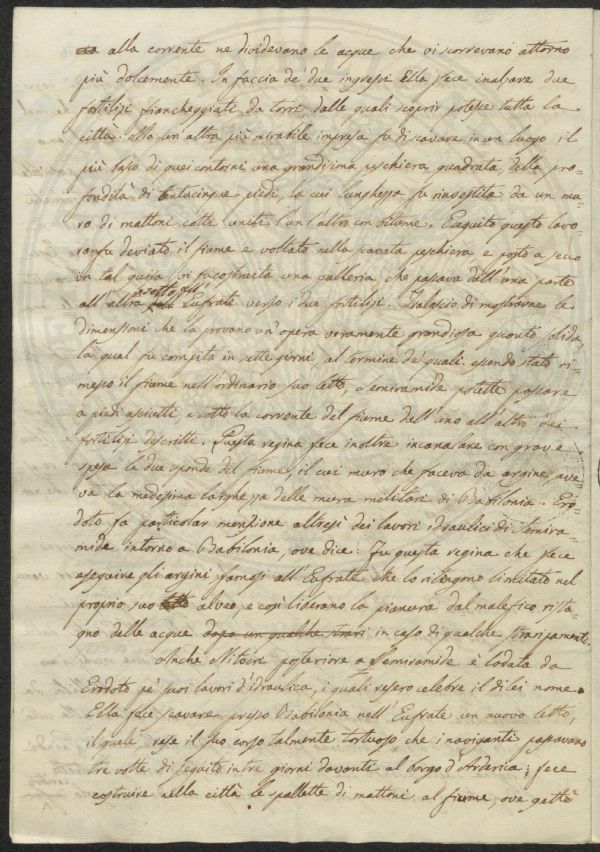 alla corrente ne dividevano le acque che vi scorrevano attorno
più dolcemente. In faccia de' due ingressi Ella fece inalzare due
fortilizi fiancheggiati da torri, dalle quali scoprir potesse tutta la
città. Ma un'altra più mirabile impresa fu di scavare in un luogo il
più basso di quei contorni una grandissima peschiera quadrata della pro=
fondità di trentacinque piedi, la cui lunghezza fu rinvestita da un mu=
ro di mattoni cotti uniti l'un l'altro con bitume. Eseguito questo lavo=
ro fu deviato il fiume e voltato nella scavata peschiera e posto a secco
in tal guisa vi fu costruita una galleria che passava dall'una parte
all'altra sotto l'Eufrate verso i due fortilizi. Tralascio di mostrarne le
dimensioni che la provano un'opera veramente grandiosa quanto solida,
la qual fu compita in sette giorni, al termine de' quali essendo stato ri=
messo il fiume nell'ordinario suo letto, Semiramide potette passare
a piedi asciutti, e sotto la corrente del fiume dall'uno all'altro dei
fortilizi descritti. Questa regina fece inoltre incanalare con grave
spesa le due sponde del fiume, il cui muro che faceva da argine, ave=
va la medesima larghezza delle mura militari di Babilonia. Ero=
doto fa particolar menzione altresì dei lavori idraulici di Semira=
mide intorno a Babilonia, ove dice: Fu questa regina che fece
eseguire gli argini famosi all'Eufrate che lo ritengono limitato nel
proprio suo alveo, e così liberano la pianura dal malefico rista=
gno delle acque dopo un qualche strari in caso di qualche straripamento.
Anche Nitocri posteriore a Semiramide è lodata da
Erodoto pe' suoi lavori d'idraulica, i quali resero celebre il di lei nome.
Ella fece scavare presso Babilonia nell'Eufrate un nuovo letto,
il quale rese il suo corso talmente tortuoso, che i naviganti passavano
tre volte di seguito in tre giorni davanti al borgo d'Arderica; fece
costruire nella città le spallette di mattoni al fiume, ove gettò